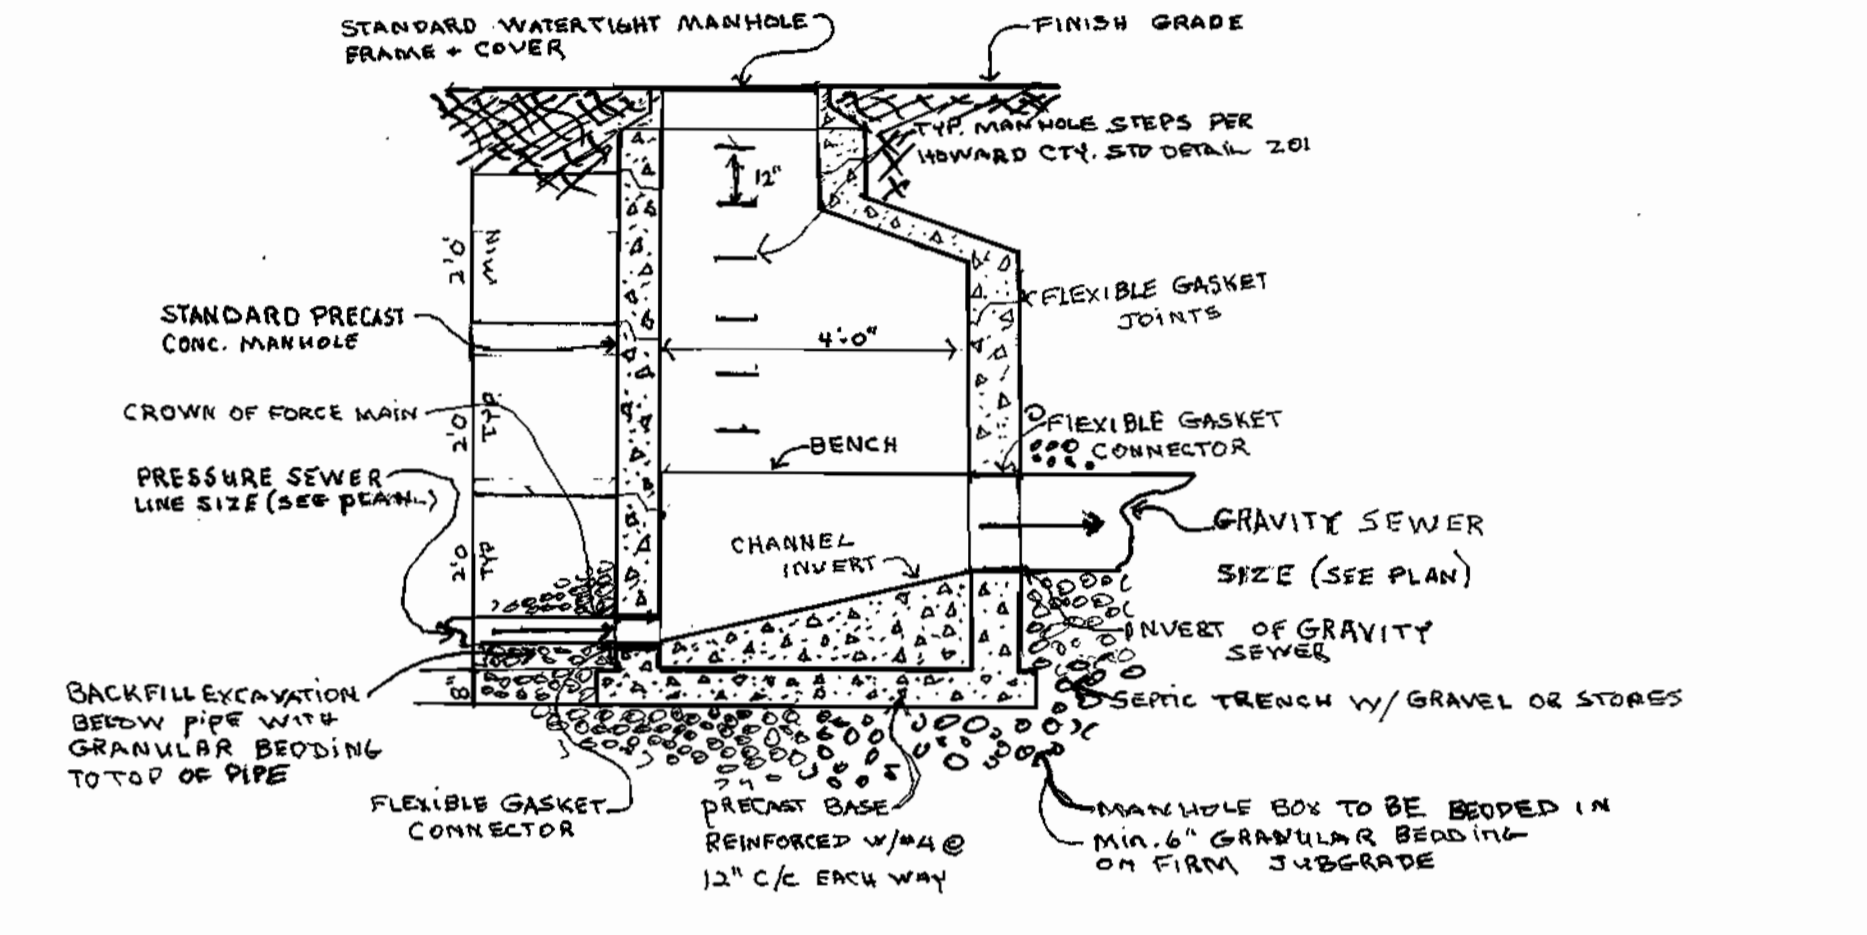 STANDARD WATERTIGHT MANHOLE
FRAME + COVER
FINISH GRADE
TYP. MANHOLE STEPS PER
HOWARD CTY. STD DETAIL 201
12"
2'0"
MIN
FLEXIBLE GASKET
JOINTS
STANDARD PRECAST
CONC. MANHOLE
4'-0"
CROWN OF FORCE MAIN
2'0
TYP
FLEXIBLE GASKET
CONNECTOR
BENCH
PRESSURE SEWER
LINE SIZE (SEE PLAN)
GRAVITY SEWER
SIZE (SEE PLAN)
CHANNEL
INVERT
2'0
TYP
INVERT OF GRAVITY
SEWER
8"
BACKFILL EXCAVATION
BELOW PIPE WITH
GRANULAR BEDDING
TO TOP OF PIPE
SEPTIC TRENCH W/ GRAVEL OR STORES
FLEXIBLE GASKET
CONNECTOR
PRECAST BASE
REINFORCED W/#4 @
12" C/C EACH WAY
MANHOLE BOX TO BE BEDDED IN
MIN. 6" GRANULAR BEDDING
ON FIRM SUBGRADE